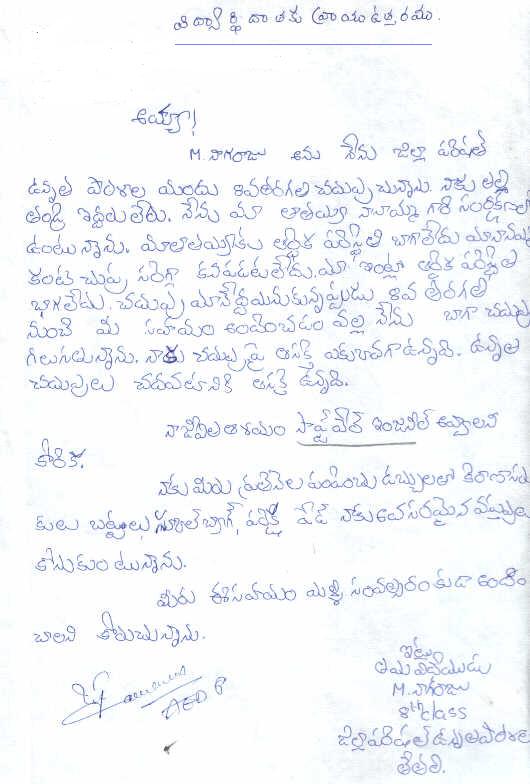 విద్యార్థి దాతకు వ్రాయు ఉత్తరము.
అయ్యా!
M. నాగరాజు అను నేను జిల్లా పరిషత్
ఉన్నత పాఠశాల యందు 8వతరగతి చదువు చున్నాను. నాకు తల్లి
తండ్రి ఇద్దరులేరు. నేను మా తాతయ్య నానమ్మ గారి సంరక్షణలో
ఉంటున్నాను. మాతాతయ్యకు ఆర్థిక పరిస్థితి బాగాలేదు మానానమ్మ
కంటి చుపు సరిగ్గా కనపడుటలేదు. మా ఇంట్లో ఆర్థిక పరిస్థితి
బాగలేదు. చదువు మానేద్దామనుకున్నప్పుడు 8వ తరగతి
నుంచి మీ సహాయం అందించడం వల్ల నేను బాగా చదువ
గలుగుతున్నాను. నాకు చదువుపై ఆసక్తి ఎకువగా ఉన్నది. ఉన్నత
చదువులు చదవటానికి ఆసక్తి ఉన్నది.
నాజీవిత ఆశయం సాఫ్ట్ వేర్ ఇంజనీర్ అవ్వాలని
కోరిక.
నాకు మీరు ప్రతినెల పంపించు డబ్బులతో కిరాణాసరు
కులు బట్టలు, స్కూల్ బ్యాగ్, పరీక్ష ప్యాడ్ నాకు అవసరమైన వస్తువులు
కొనుకుంటున్నాను.
మీరు ఈసహాయం మళ్ళీ సంవత్సరం కుడా అందిం
చాలని కోరుచున్నాను.
ఇట్లు
తమ విదేయుడు
M. నాగరాజు
8th class
జిల్లాపరిషత్ ఉన్నతపాఠశాల
తేతలి.